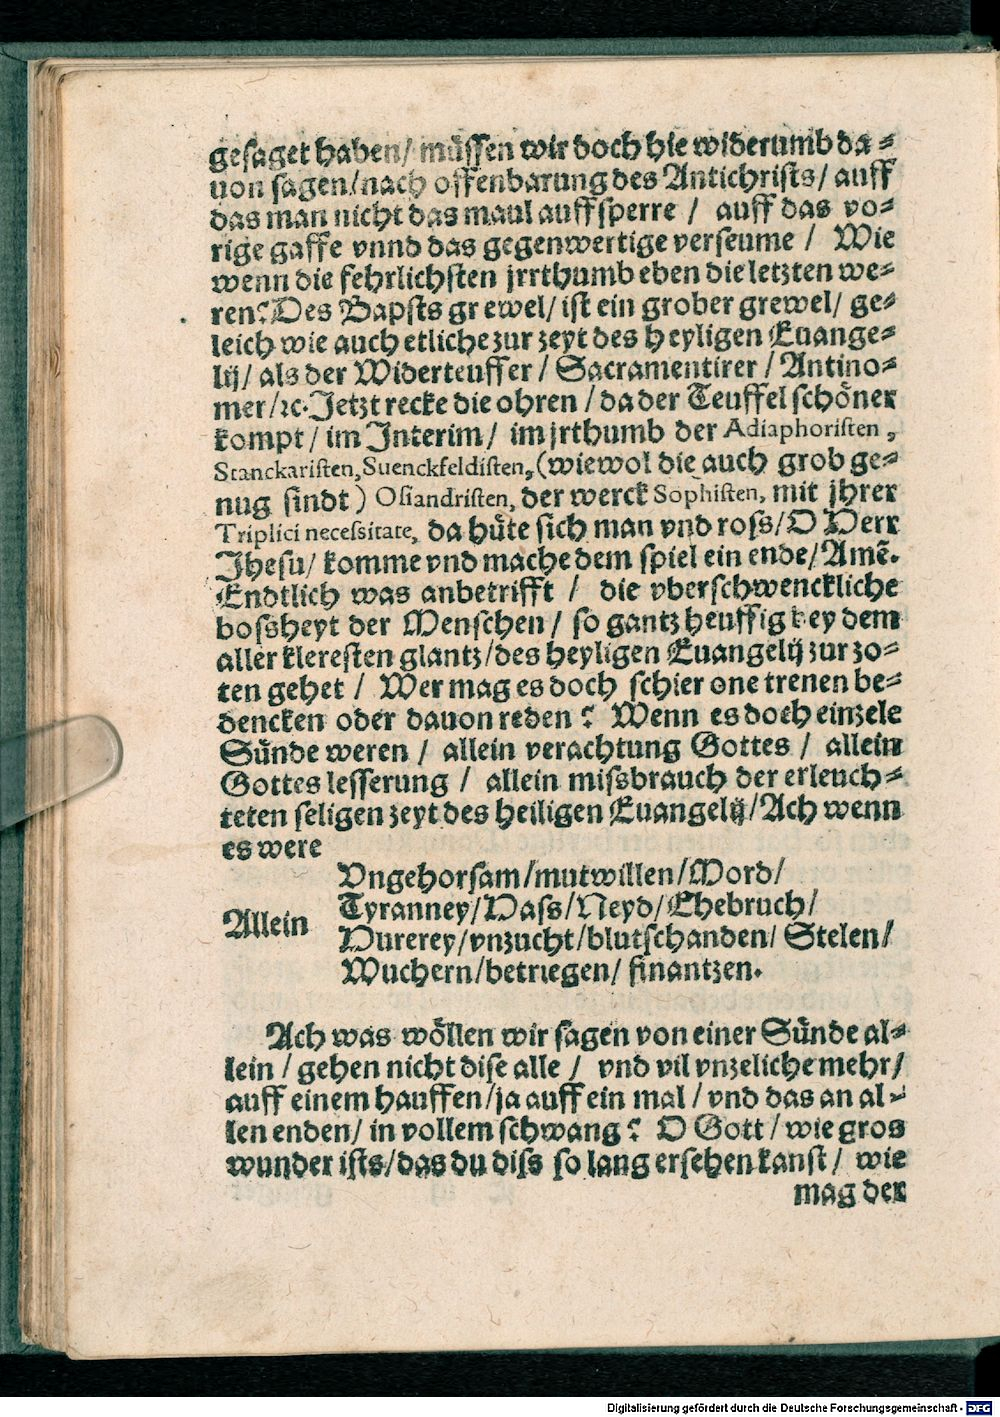 gesaget haben/ müssen wir doch hie widerumb da=
uon sagen/nach offenbarung des Antichrists/ auff
das man nicht das maul auffsperre / auff das vo=
rige gaffe vnnd das gegenwertige verseume / Wie
wenn die fehrlichsten jrrthumb eben die letzten we=
ren? Des Bapsts grewel/ ist ein grober grewel/ ge=
leich wie auch etliche zur zeyt des heyligen Euange=
lij/ als der Widerteuffer / Sacramentirer / Antino=
mer/ꝛc. Jetzt recke die ohren / da der Teuffel schöner
kompt / im Interim/ im jrthumb der Adiaphoristen,
Stanckaristen, Suenckfeldisten, (wiewol die auch grob ge=
nug sindt) Osiandristen, der werck Sophisten, mit jhrer
Triplici necessitate, da hüte sich man vnd ross/ O Herr
Jhesu/ komme vnd mache dem spiel ein ende/ Amẽ.
Endtlich was anbetrifft / die vberschwenckliche
bossheyt der Menschen / so gantz heuffig bey dem
aller kleresten glantz/des heyligen Euangelij zur zo=
ten gehet / Wer mag es doch schier one trenen be=
dencken oder dauon reden? Wenn es doch einzele
Sünde weren / allein verachtung Gottes / allein
Gottes lesserung / allein missbrauch der erleuch=
teten seligen zeyt des heiligen Euangelij/ Ach wenn
es were
Vngehorsam/mutwillen/Mord/
Allein Tyranney/Hass/Neyd/Ehebruch/
Hurerey/vnzucht/blutschanden/ Stelen/
Wuchern/betriegen/ finantzen.
Ach was wöllen wir sagen von einer Sünde al=
lein / gehen nicht dise alle / vnd vil vnzeliche mehr/
auff einem hauffen/ja auff ein mal / vnd das an al=
len enden/ in vollem schwang? O Gott / wie gros
wunder ists/das du diss so lang ersehen kanst / wie
mag der
Digitalisierung gefördert durch die Deutsche Forschungsgemeinschaft - DFG